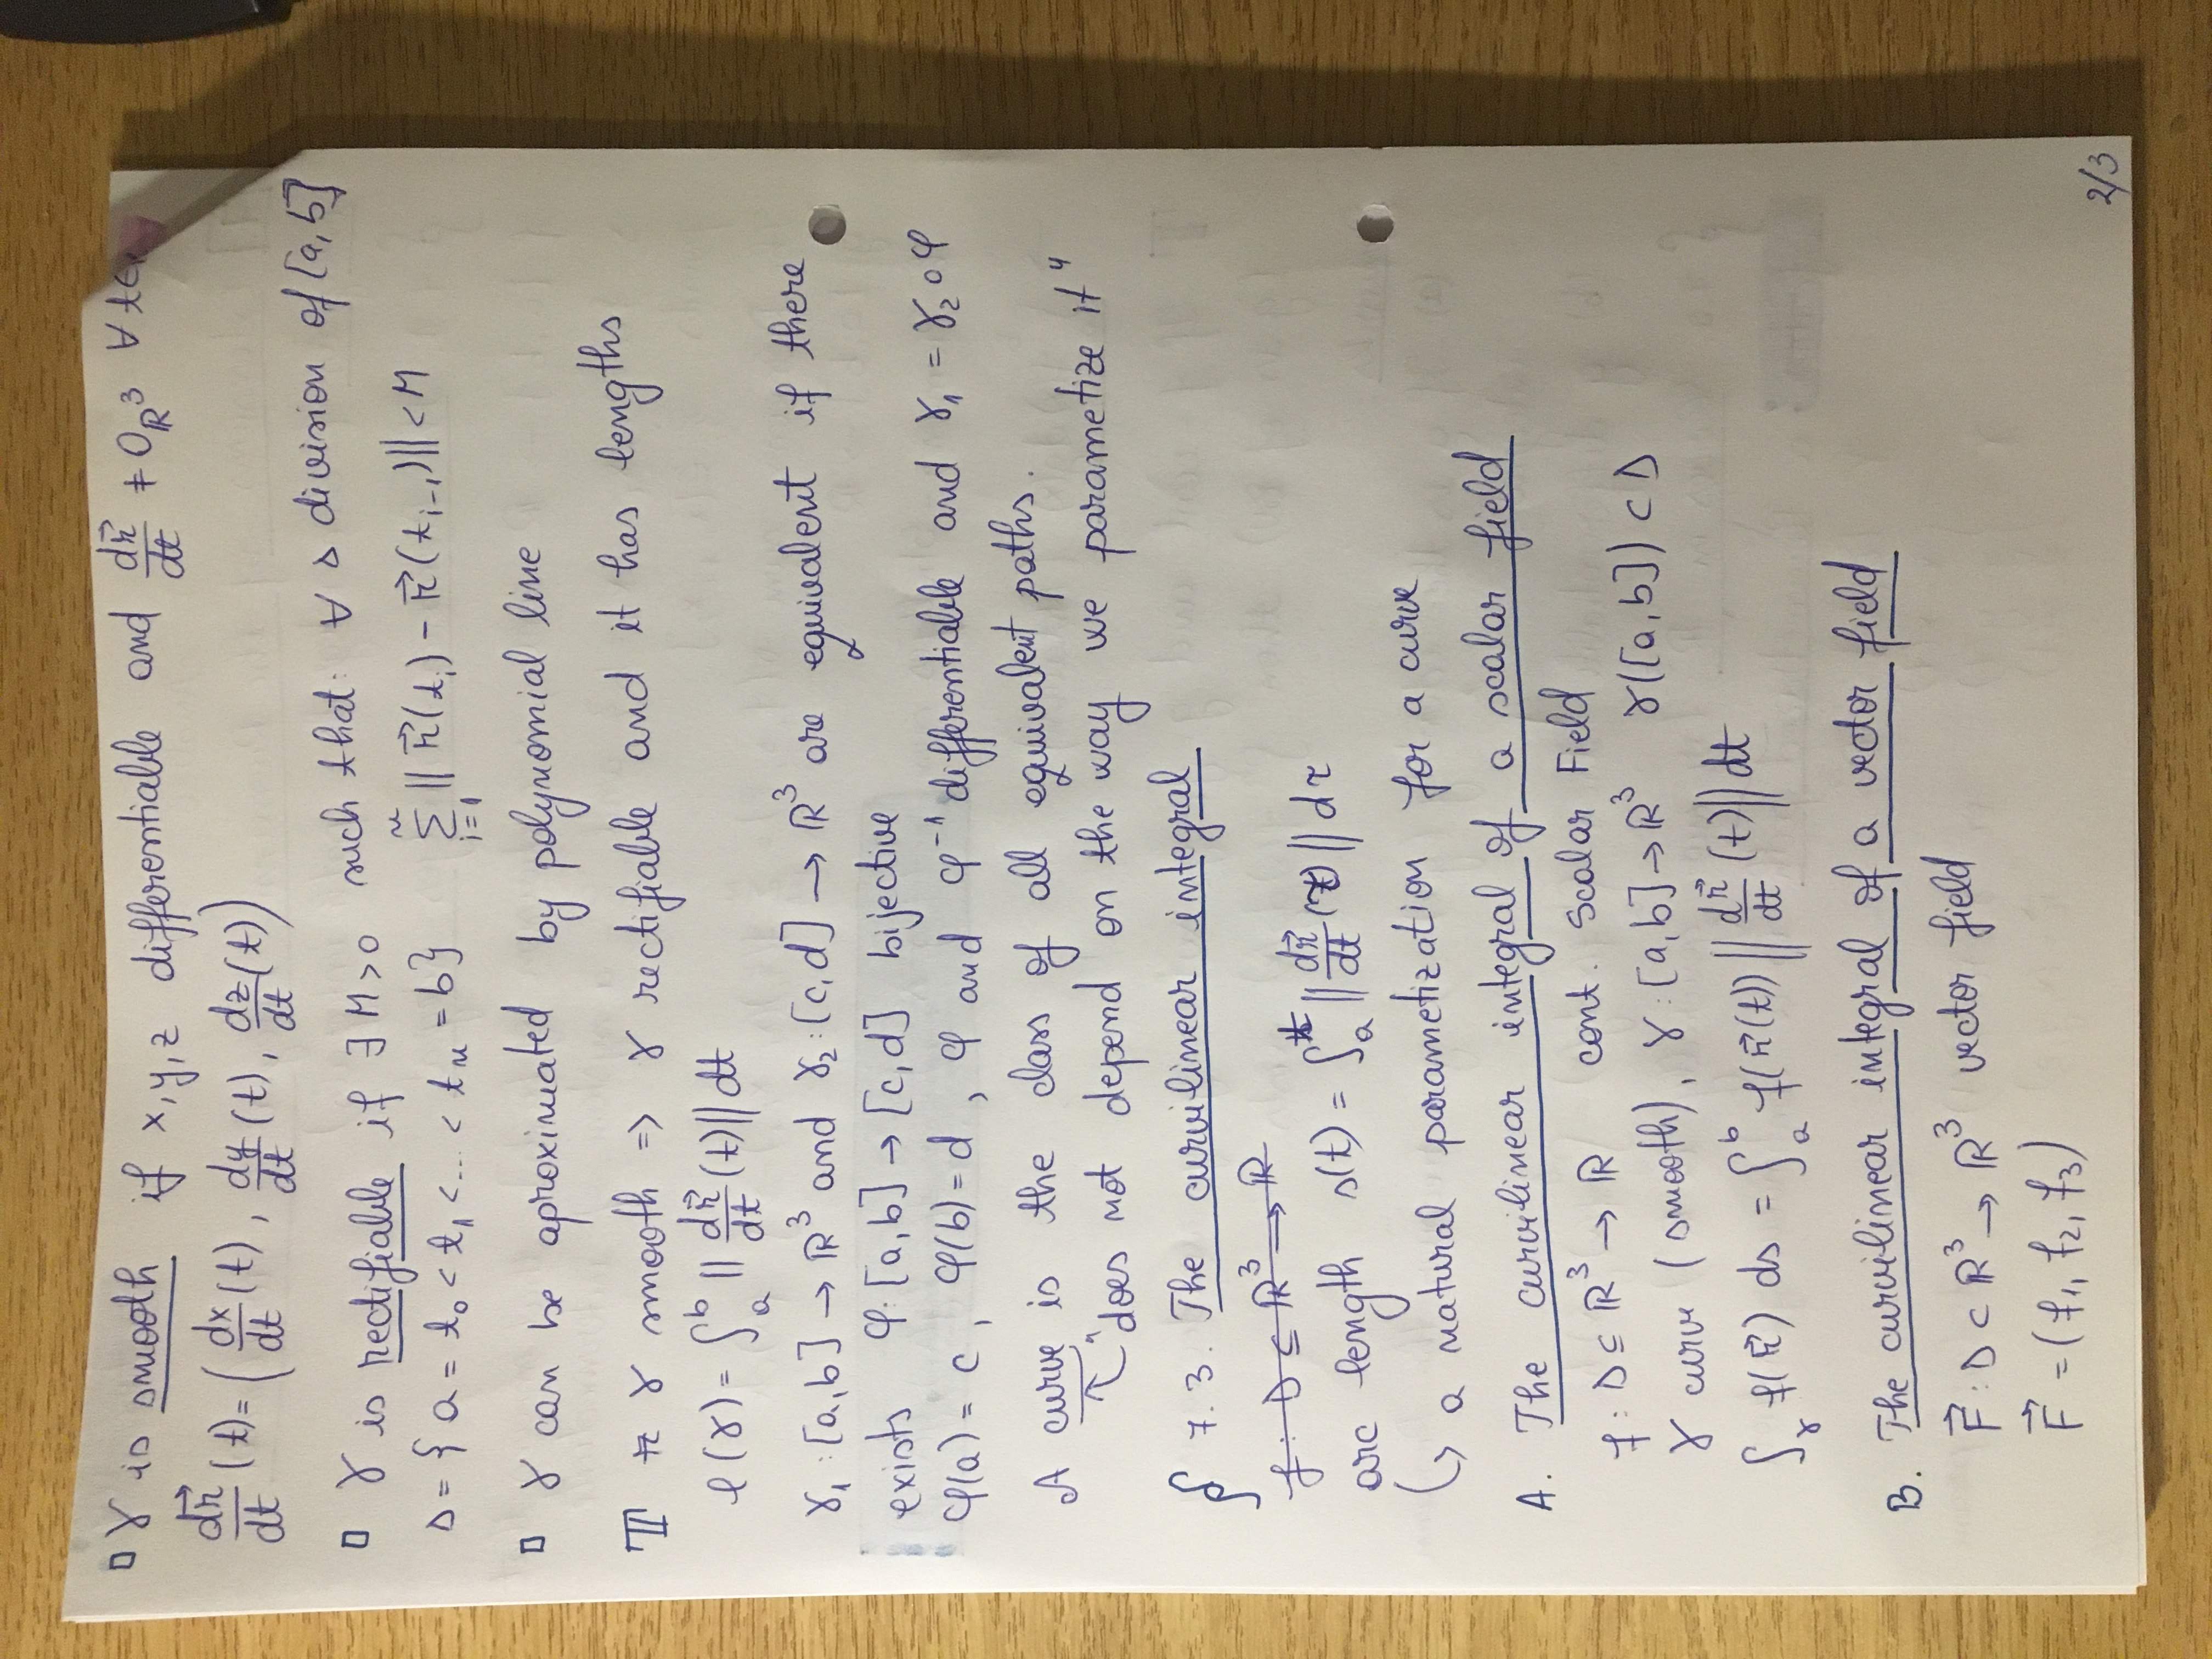 ▯ γ is smooth if x, y, z differentiable and dr⃗/dt ≠ 0_ℝ³ ∀ t ∈
dr⃗/dt (t) = (dx/dt (t), dy/dt (t), dz/dt (t))
▯ γ is rectifiable if ∃ M > 0 such that: ∀ Δ division of [a, b]
Δ = { a = t₀ < t₁ < ... < tₙ = b } ∑ᵢ₌₁ⁿ || r⃗(tᵢ) − r⃗(tᵢ₋₁) || < M
▯ γ can be aproximated by polynomial line
T γ smooth => γ rectifiable and it has lengths
ℓ(γ) = ∫ₐᵇ || dr⃗/dt (t) || dt
γ₁ : [a, b] → ℝ³ and γ₂ : [c, d] → ℝ³ are equivalent if there
exists φ: [a, b] → [c, d] bijective
φ(a) = c, φ(b) = d, φ and φ⁻¹ differentiable and γ₁ = γ₂ ∘ φ
A curve is the class of all equivalent paths.
"does not depend on the way we parametize it"
§ 7.3. The curvilinear integral
f : D ⊆ ℝ³ → ℝ
arc length s(t) = ∫ₐᵗ || dr⃗/dt (τ) || dτ
↳ a natural parametization for a curve
A. The curvilinear integral of a scalar field
f : D ⊆ ℝ³ → ℝ cont. Scalar Field
γ curve (smooth), γ : [a, b] → ℝ³ γ([a, b]) ⊂ D
∫_γ f(r⃗) ds = ∫ₐᵇ f(r⃗(t)) || dr⃗/dt (t) || dt
B. The curvilinear integral of a vector field
F⃗ : D ⊂ ℝ³ → ℝ³ vector field
F⃗ = (f₁, f₂, f₃)
2/3